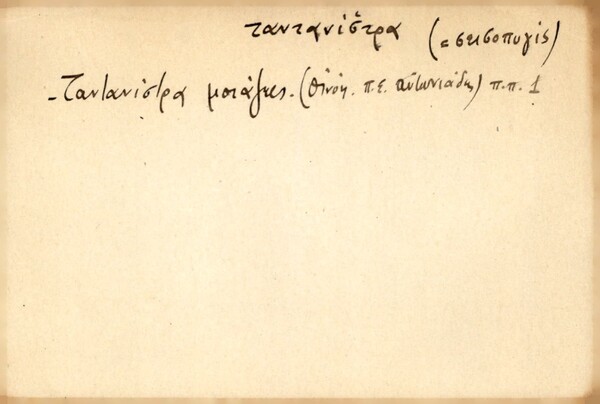 ταντανίστρα (= σεισοπυγίς)
- Ταντανίστρα μοιάζεις. (Οἰνόη. π.ε. Αντωνιάδης) π.π. 1